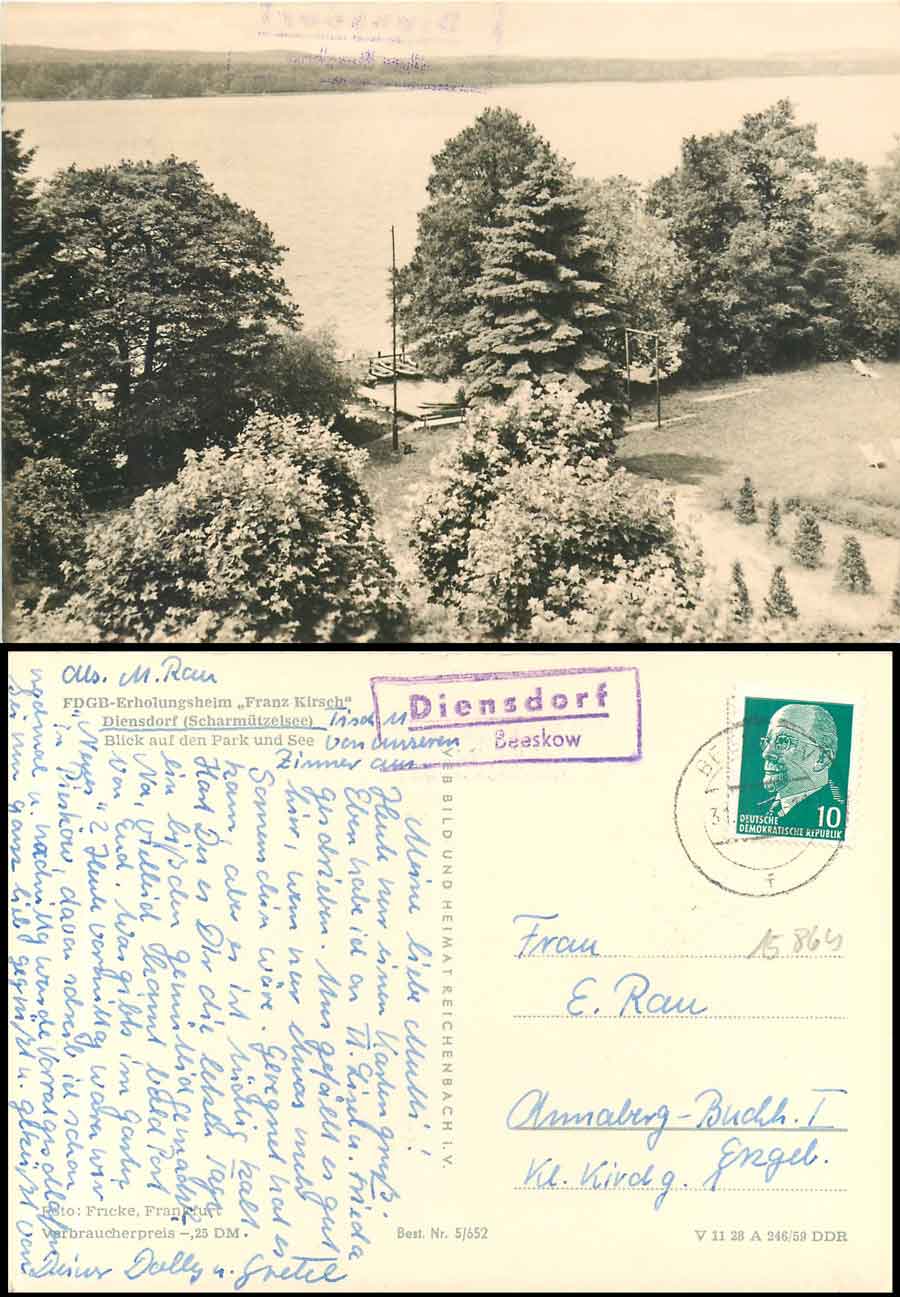 Abs. M. Rau
FDGB-Erholungsheim „Franz Kirsch"
Diensdorf (Scharmützelsee)
Blick auf den Park und See
von unserem
Zimmer aus
Diensdorf
Beeskow
DEUTSCHE
DEMOKRATISCHE REPUBLIK
10
31.
Meine liebe Mutti!
Heute nur einen Kartengruß.
Eben habe ich an Tt. Liesb. u. Frieda
geschrieben. Uns gefällt es gut
hier, wenn nur etwas mehr
Sonnenschein wäre. Geregnet hat es
kaum, aber es ist richtig kalt.
Hast Du es Dir die letzten Tage
ein bißchen gemütlich gemacht?
Na, vielleicht kommt bald Post
von Euch. Was gibts im Garten
Neues? Heute vormittag waren wir
in Pieskow, davon schreib ich schon
u. nachmittag
Sei nun ganz lieb gegrüßt u. geküßt von
Deiner Dolly u. Gretel
VEB BILD UND HEIMAT REICHENBACH i. V.
Frau
15 864
E. Rau
Annaberg-Buchh. I
Erzgeb.
Kl. Kirchg.
Foto: Fricke, Frankfurt
Verbraucherpreis –,25 DM
Best. Nr. 5/652
V 11 28 A 246/59 DDR